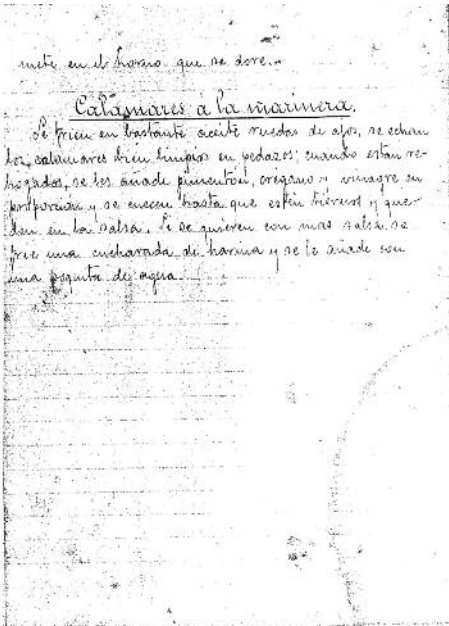 mete en el horno que se dore.-
Calamares á la marinera.
Se frien en bastante aceite ruedas de ajos, se echan
los calamares bien limpios en pedazos; cuando estan re-
hogados, se les añade pimenton, orégano y vinagre en
proporción y se cuecen hasta que estén tiernos y que-
den en la salsa. Si se quieren con mas salsa se
frie una cucharada de harina y se le añade con
una poquita de agua.